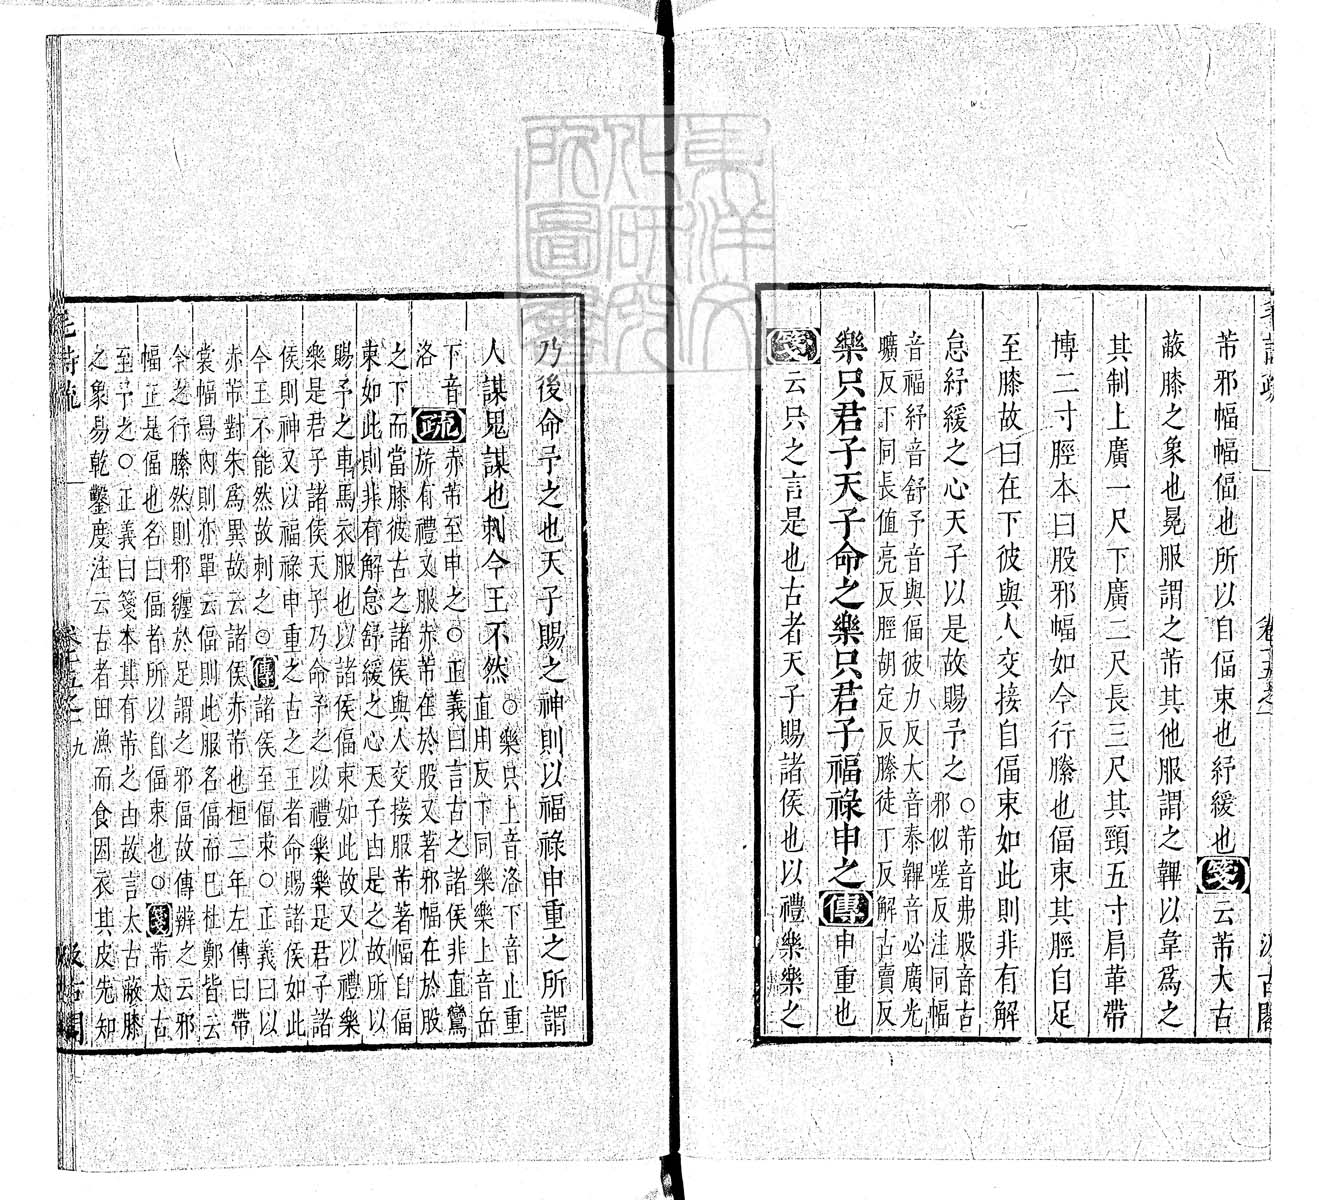 芾邪幅幅偪也所以自偪束也紓緩也箋云芾大古
蔽膝之象也冕服謂之芾其他服謂之韠以韋為之
其制上廣一尺下廣二尺長三尺其頸五寸肩革帶
博二寸脛本曰股邪幅如今行縢也偪束其脛自足
至膝故曰在下彼與人交接自偪束如此則非有解
怠紓緩之心天子以是故賜予之○芾音弗股音古
邪似嗟反注同幅
音福紓音舒予音與偪彼力反大音泰韠音必廣光
曠反下同長值亮反脛胡定反縢徒丁反解古賣反
樂只君子天子命之樂只君子福祿申之傳申重也
箋云只之言是也古者天子賜諸侯也以禮樂樂之
乃後命予之也天子賜之神則以福祿申重之所謂
人謀鬼謀也刺今王不然○樂只上音洛下音止重
直用反下同樂樂上音岳
下音
洛疏赤芾至申之○正義曰言古之諸侯非直鸞
旂有禮又服赤芾在於股又著邪幅在於股
之下而當膝彼古之諸侯與人交接服芾著幅自偪
束如此則非有解怠舒緩之心天子由是之故所以
賜予之車馬衣服也以諸侯偪束如此故又以禮樂
樂是君子諸侯天子乃命予之以禮樂樂是君子諸
侯則神又以福祿申重之古之王者命賜諸侯如此
今王不能然故刺之○傳諸侯至偪束○正義曰以
赤芾對朱為異故云諸侯赤芾也桓二年左傳曰帶
裳幅舄內則亦單云偪則此服名偪而已杜鄭皆云
今之行縢然則邪纏於足謂之邪偪故傳辨之云邪
幅正是偪也名曰偪者所以自偪束也○箋芾大古
至予之○正義曰箋本其有芾之由故言太古蔽膝
之象易乾鑿度注云古者田漁而食因衣其皮先知
毛詩疏 卷十五之一 九 汲古閣